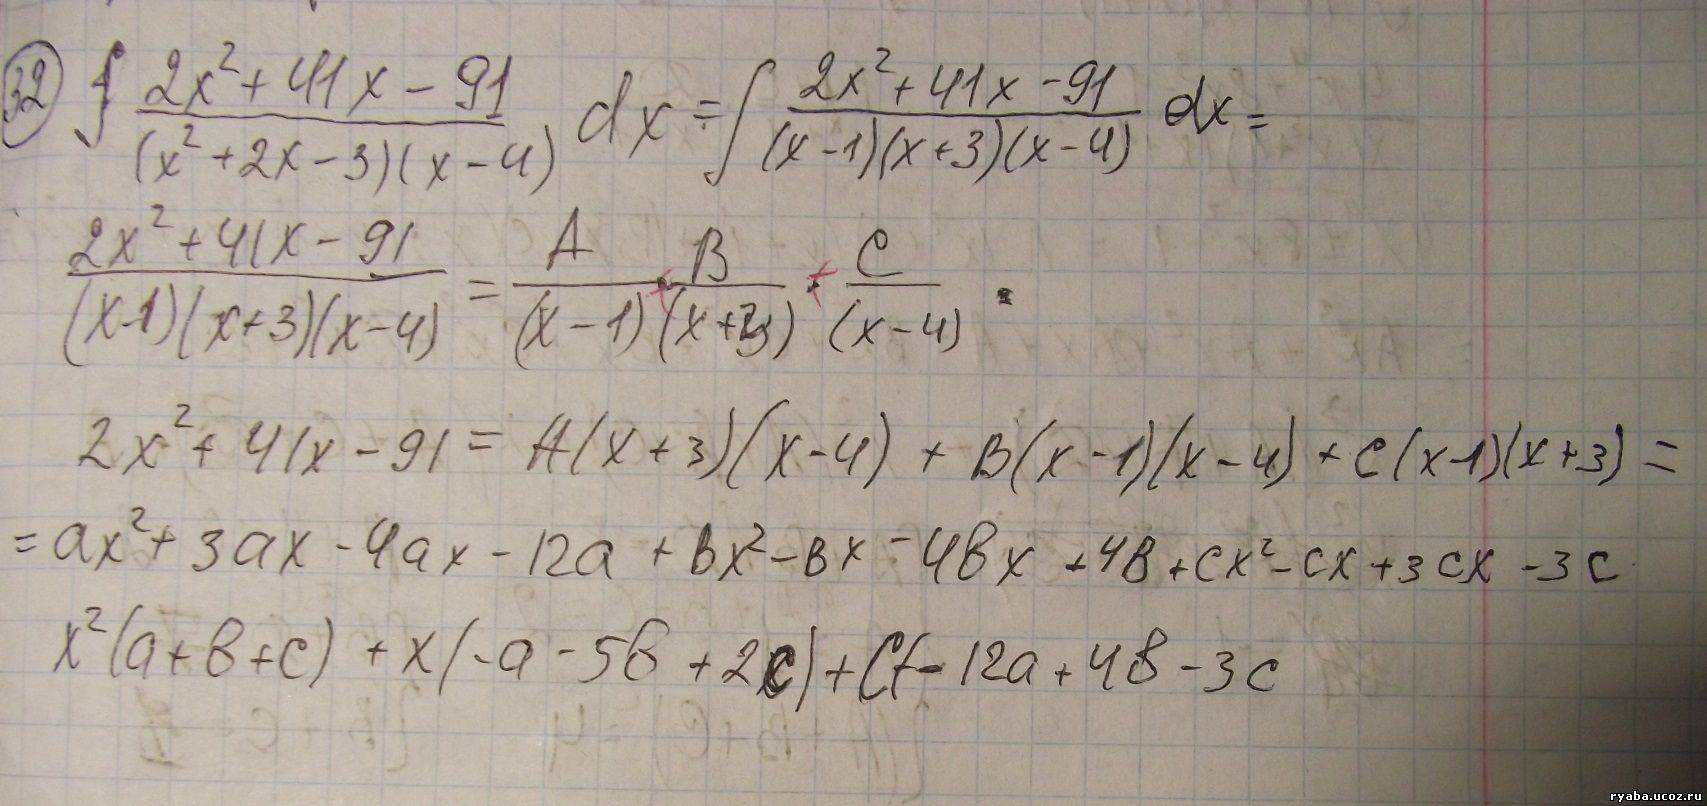 32 ∫ (2x² + 41x - 91)/((x² + 2x - 3)(x - 4)) dx = ∫ (2x² + 41x - 91)/((x - 1)(x + 3)(x - 4)) dx =
(2x² + 41x - 91)/((x-1)(x+3)(x-4)) = A/(x - 1) + B/(x + 3) + C/(x - 4)
2x² + 41x - 91 = A(x + 3)(x - 4) + B(x - 1)(x - 4) + C(x-1)(x+3) =
= ax² + 3ax - 4ax - 12a + bx² - bx - 4bx + 4b + cx² - cx + 3cx - 3c
x²(a + b + c) + x(-a - 5b + 2c) + (- 12a + 4b - 3c
ryaba.ucoz.ru